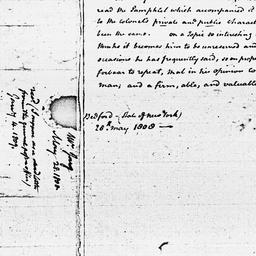 read the Pamphlet which accompanied it
to the colonels private and public charact
been the same. on a Topic so interesting
thinks it becomes him to be unreserved an
occasions he has frequently said, so on prope
forbear to repeat, that in his opinion Co
man; and a firm, able, and valuable
Bedford - (State of new York)
28th may 1808 —
Mr Jay
May 28. 1808